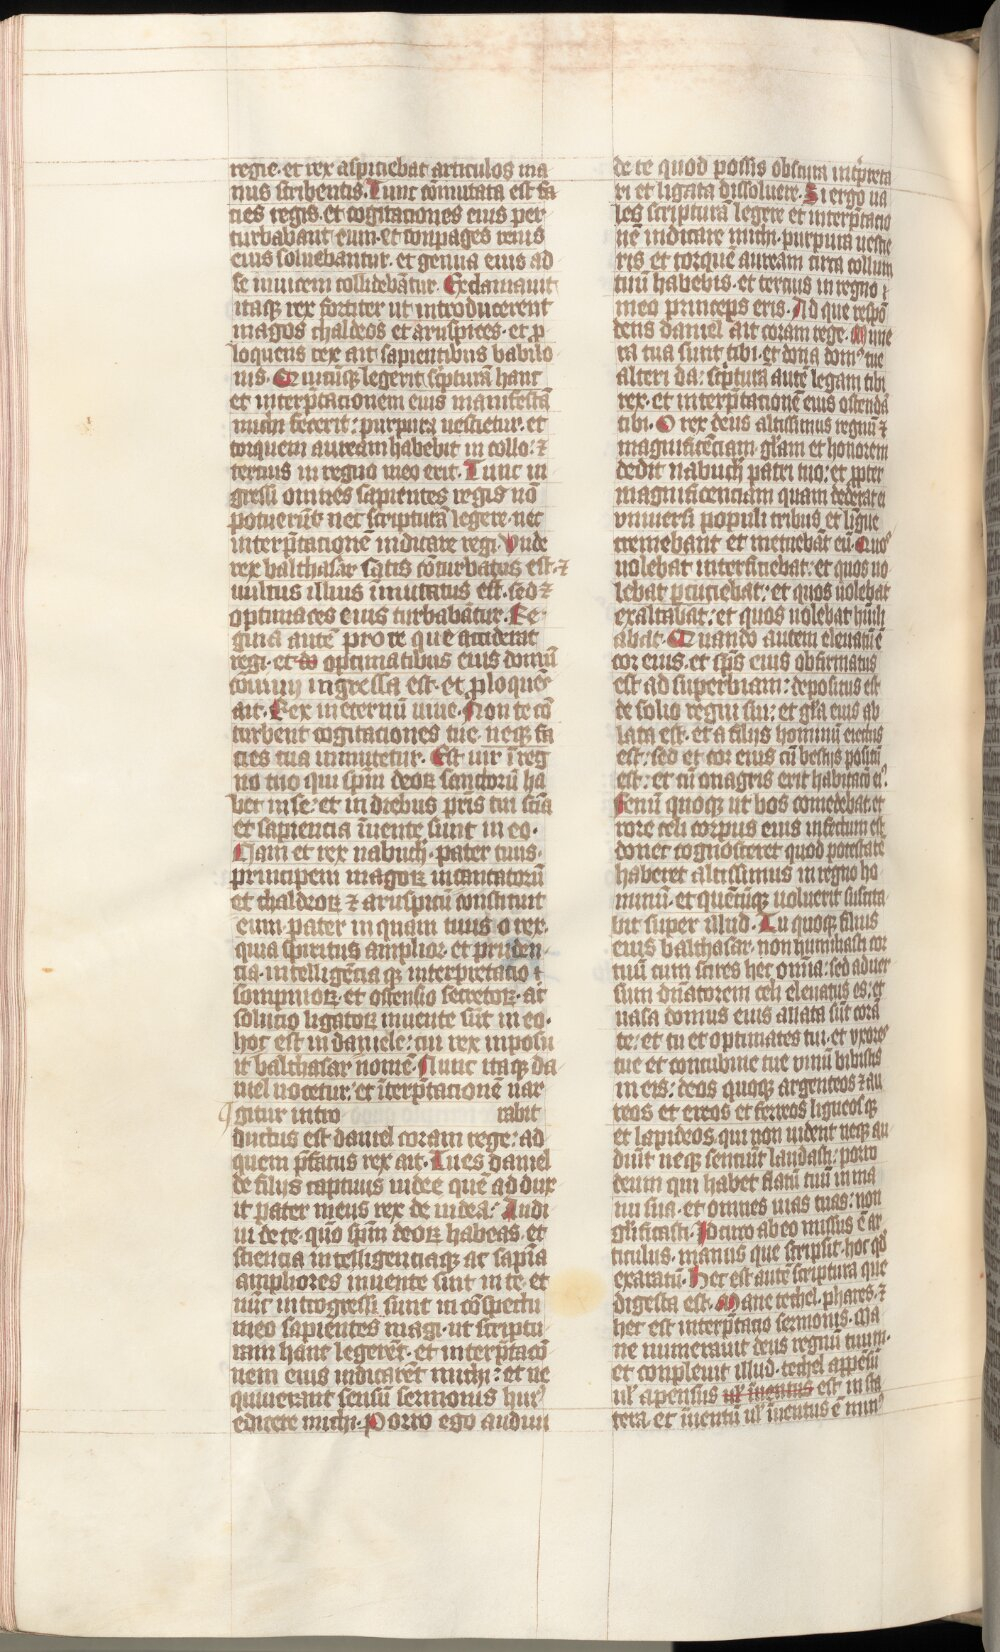 regie. et rex aspiciebat articulos ma
nus scribentis. Tunc cōmutata est fa
cies regis. et cogitaciones eius per
turbabant eum. et conpages renis
eius soluebantur. et genua eius ad
se inuicem collidebātur. Exclamauit
itaqꝫ rex fortiter ut introducerent
magos chaldeos et aruspices. et ꝓ
loquens rex ait sapientibus babilo
nis. Quicūqꝫ legerit scpturā hanc
et interp̄tacionem eius manifestā
michi fecerit: purpura uestietur. et
torquem auream habebit in collo: ⁊
tercius in regno meo erit. Tunc in
gressi omnes sapientes regis nō
potuerūt nec scripturā legere. nec
interp̄tacionē indicare regi. Vnde
rex balthasar satis cōturbatus est. ⁊
uultus illius īmutatus est. sed ⁊
optimates eius turbabātur. Re
gina autē pro re que acciderat
regi. et optimatibus eius domū
conuiuij ingressa est. et ꝓloquēs
ait. Rex in eternū uiue. Non te cō
turbent cogitaciones tue. neqꝫ fa
cies tua inmutetur. Est uir ī reg
no tuo qui spm̄ deoꝝ sanctorū ha
bet in se: et in diebus pris tui scīa
et sapiencia īuente sunt in eo.
Nam et rex nabuch. pater tuus.
principem magoꝝ incantatorū
et chaldeoꝝ ⁊ aruspicū constituit
eum. pater in quam tuus o rex.
quia spiritus amplior. et pruden
cia. intelligēcia qꝫ interpretacio
sompnioꝝ. et ostensio secretoꝝ. ac
solucio ligatoꝝ inuente sūt in eo.
hoc est in daniele: cui rex inposu
it balthasar nomē. Nunc itaqꝫ da
niel uocetur. et īterp̄tacionē nar
gitur intro rabit
ductus est daniel coram rege: ad
quem p̄fatus rex ait. Tu es daniel
de filijs captiuis iudee quē ad dux
it pater meus rex de iudea: Audi
ui de te. quō spm̄ deoꝝ habeas. et
sciencia intelligenciaqꝫ ac sapīa
ampliores inuente sint in te. et
nūc introgressi sunt in cōspectu
meo sapientes magi. ut scriptu
ram hanc legerēt. et interp̄tacō
nem eius indicarēt michi: et ne
quiuerant sensū sermonis huiꝰ
edicere michi. Porro ego audiui
de te quod possis obscura int̄preta
ri et ligata dissoluere. Si ergo ua
les scripturā legere et interp̄tacio
nē indicare michi. purpura uestie
ris et torquē auream circa collum
tuū habebis. et tercius in regno
meo princeps eris. Ad que respō
dens daniel ait coram rege. Mune
ra tua sunt tibi. et dona domꝰ tue
alteri da: scpturā autē legam tibi
rex. et interp̄tacionē eius ostendā
tibi. O rex deus altissimus regnū ⁊
magnificēciam. glām et honorem
dedit nabuch patri tuo: et ꝓpter
magnificenciam quam dederat ei
vniuersi populi tribus et ligue
tremebant et metuebāt eū. Quos
uolebat interficiebat: et quos uo
lebat ꝑcuciebat: et quos uolebat
exaltabat: et quos uolebat hūili
abat. Quando autem eleuatū ē
cor eius. et spūs eius obfirmatus
est ad superbiam: depositus est
de solio regni sui: et glā eius ab
lata est. et a filijs hominū eiectus
est: sed et cor eius cū bestijs positū
est: et cū onagris erit habitacō eiꝰ.
Fenū quoqꝫ ut bos comedebat. et
rore celi corpus eius infectum est
donec cognosceret quod potestatē
haberet altissimus in regno ho
minū. et quēcūqꝫ uoluerit suscita
bit super illud. Tu quoqꝫ filius
eius balthasar. non humiliasti cor
tuū cum scires hec omīa: sed aduer
sum dn̄atorem celi eleuatus es: et
uasa domus eius allata sūt corā
te: et tu et optimates tui. et vxores
tue et concubine tue vinū bibistis
in eis: deos quoqꝫ argenteos ⁊ au
reos et ereos et ferreos ligneos qꝫ
et lapideos. qui non uident neqꝫ au
diūt neqꝫ senciūt laudasti: porro
deum qui habet flatū tuū in ma
nu sua. et omnes uias tuas: non
glīficasti. Idcirco ab eo missus ē ar
ticulus. manus que scripsit. hoc qd̄
exaratū. Hec est autē scriptura que
digesta est. Mane techel. phares. ⁊
hec est interp̄tacio sermonis. Ma
ne numerauit deus regnū tuum.
et conpleuit illud. techel appēsū
uł apensus uł īuentus est in sta
tera. et īuentū uł īuentus ē minꝰ